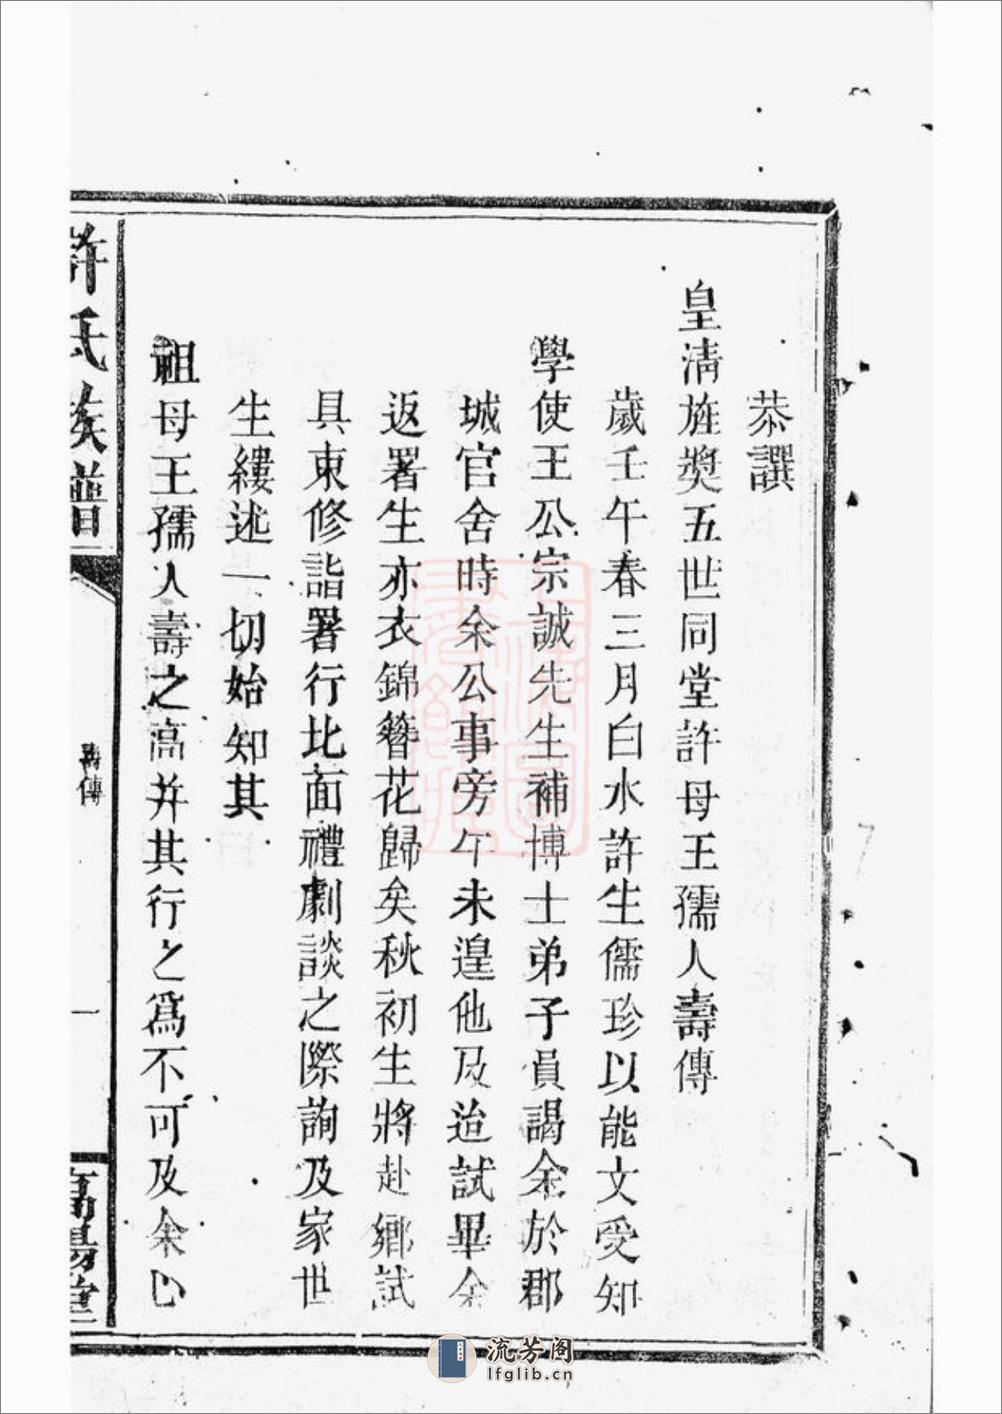 恭譔
皇清旌奬五世同堂許母王孺人壽傳
歲壬午春三月白水許生儒珍以能文受知
學使王公宗誠先生補博士弟子員謁余於郡
城官舍時余公事旁午未遑他及迨試畢余
返署生亦衣錦簪花歸矣秋初生將赴鄉試
具束修詣署行北面禮劇談之際詢及家世
生縷述一切始知其
祖母王孺人壽之高并其行之爲不可及余心
許氏族譜
壽傳
一
高陽堂
流芳阁
lfglib.cn